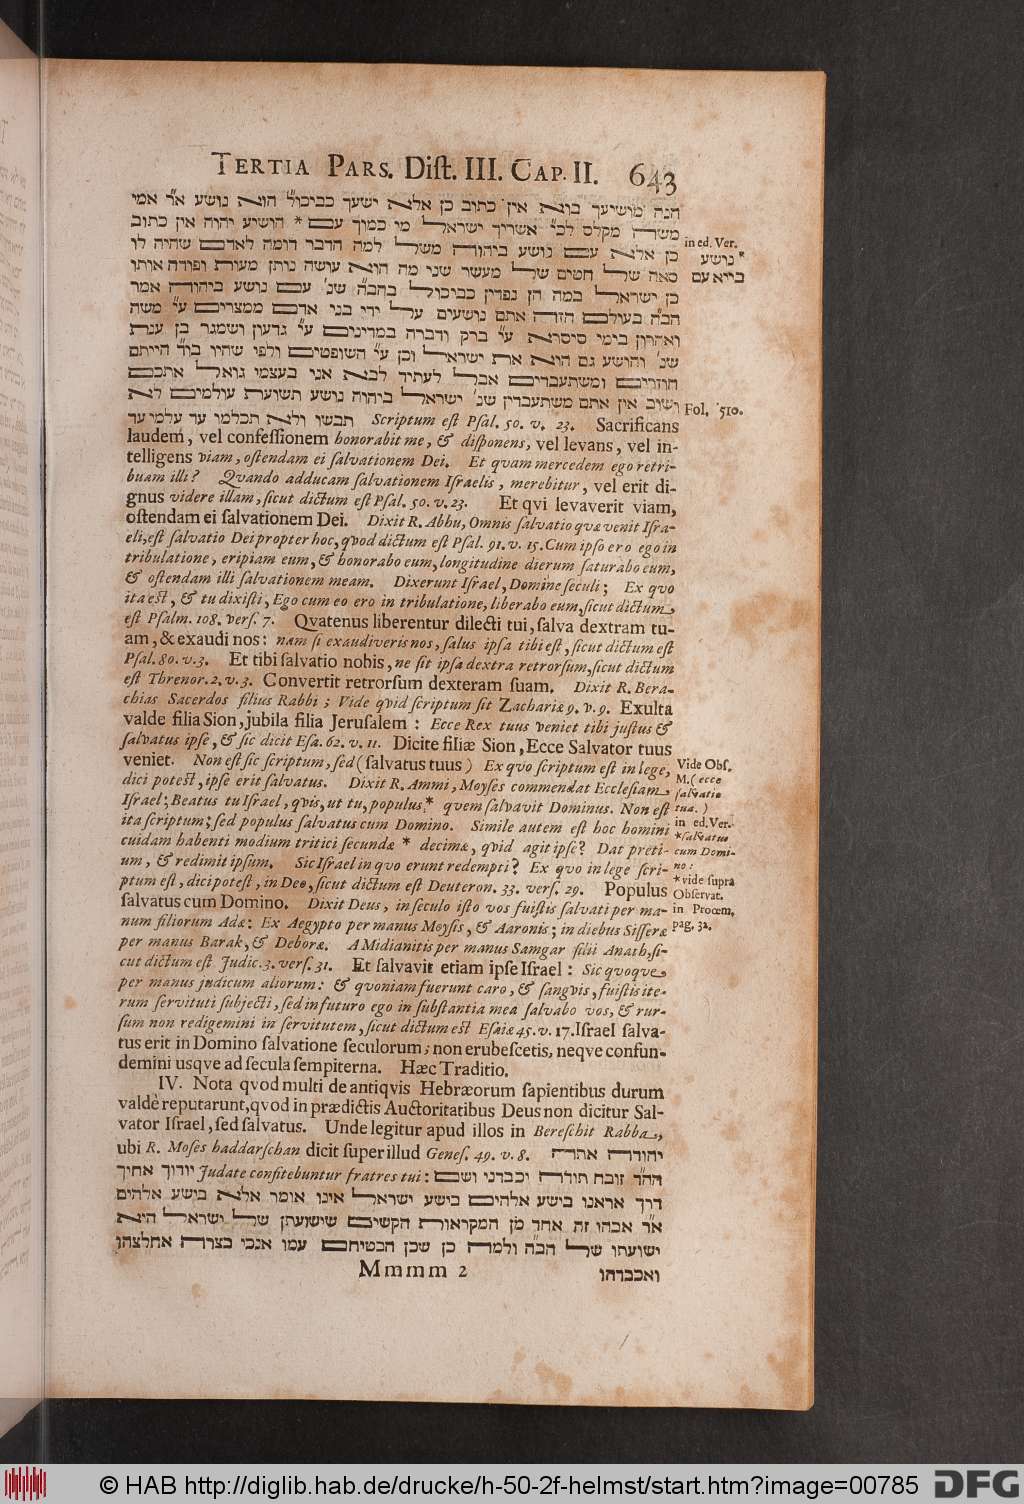 TERTIA PARS. Dist. III. CAP. II. 643
הנה מושיעך בוא אין כתוב כן אלא ישעך כביכול הוא נושע א״ר אמי
משה מקלס לכ״י אשריך ישראל מי כמוך עם * הושיע יהוה אין כתוב
כן אלא עם נושע ביהוה משל למה הדבר דומה לאדם שהיה לו
סאה של חטים של מעשר שני מה הוא עושה נותן מעות ופודה אותו
כן ישראל במה הן נפדין כביכול בהב״ה שנ׳ עם נושע ביהוה אמר
הב״ה בעולם הזה אתם נושעים על ידי בני אדם ממצרים ע״י משה
ואהרון בימי סיסרא ע״י ברק ודברה במדינים ע״י גדעון ושמגר בן ענת
שנ׳ ויהושע גם הוא את ישראל וכן ע״י השופטים ולפי שהיו ב״וד הייתם
חוזרים ומשתעבדים אבל לעתיד לבא אני בעצמי גואל אתכם
ושוב אין אתם משתעבדין שנ׳ ישראל ביהוה נושע תשועת עולמים לא
תבשו ולא תכלמו עד עלמי עד Scriptum est Psal. 50. v. 23. Sacrificans
laudem, vel confessionem honorabit me, & disponens, vel levans, vel in-
telligens viam, ostendam ei salvationem Dei. Et quam mercedem ego retri-
buam illi? Quando adducam salvationem Israelis, merebitur, vel erit di-
gnus videre illam, sicut dictum est Psal. 50. v. 23. Et qvi levaverit viam,
ostendam ei salvationem Dei. Dixit R. Abhu, Omnis salvatio quæ venit Isra-
eli, est salvatio Dei propter hoc, qvod dictum est Psal. 91. v. 15. Cum ipso ero ego in
tribulatione, eripiam eum, & honorabo eum, longitudine dierum saturabo eum,
& ostendam illi salvationem meam. Dixerunt Israel, Domine seculi; Ex quo
ita est, & tu dixisti, Ego cum eo ero in tribulatione, liberabo eum, sicut dictum
est Psalm. 108. vers. 7. Qvatenus liberentur dilecti tui, salva dextram tu-
am, & exaudi nos: nam si exaudiveris nos, salus ipsa tibi est, sicut dictum est
Psal. 80. v. 3. Et tibi salvatio nobis, ne sit ipsa dextra retrorsum, sicut dictum
est Threnor. 2. v. 3. Convertit retrorsum dexteram suam. Dixit R. Bera-
chias Sacerdos filius Rabbi; Vide qvid scriptum sit Zachariæ 9. v. 9. Exulta
valde filia Sion, jubila filia Jerusalem: Ecce Rex tuus veniet tibi justus &
salvatus ipse, & sic dicit Esa. 62. v. 11. Dicite filiæ Sion, Ecce Salvator tuus
veniet. Non est sic scriptum, sed (salvatus tuus) Ex quo scriptum est in lege,
dici potest, ipse erit salvatus. Dixit R. Ammi, Moyses commendat Ecclesiam
Israel: Beatus tu Israel, qvis, ut tu, populus * quem salvavit Dominus. Non est
ita scriptum; sed populus salvatus cum Domino. Simile autem est hoc homini
cuidam habenti modium tritici secundæ * decimæ, qvid agit ipse? Dat preti-
um, & redimit ipsum. Sic Israel in quo erunt redempti? Ex quo in lege scri-
ptum est, dici potest, in Deo, sicut dictum est Deuteron. 33. vers. 29. Populus
salvatus cum Domino. Dixit Deus, in seculo isto vos fuistis salvati per ma-
num filiorum Adæ: Ex Aegypto per manus Moysis, & Aaronis; in diebus Sisseræ
per manus Barak, & Deboræ. A Midianitis per manus Samgar filii Anath, si-
cut dictum est Judic. 3. vers. 31. Et salvavit etiam ipse Israel: Sic quoque
per manus judicum aliorum: & quoniam fuerunt caro, & sangvis, fuistis ite-
rum servituti subjecti, sed in futuro ego in substantia mea salvabo vos, & rur-
sum non redigemini in servitutem, sicut dictum est Esaiæ 45. v. 17. Israel salva-
tus erit in Domino salvatione seculorum; non erubescetis, neqve confun-
demini usqve ad secula sempiterna. Hæc Traditio.
IV. Nota qvod multi de antiqvis Hebræorum sapientibus durum
valdè reputarunt, qvod in prædictis Auctoritatibus Deus non dicitur Sal-
vator Israel, sed salvatus. Unde legitur apud illos in Bereschit Rabba,
ubi R. Moses haddarschan dicit super illud Genes. 49. v. 8. יהודה אתה
יודוך אחיך Judate confitebuntur fratres tui: הה״ד זובח תודה יכבדני ושם
דרך אראנו בישע אלהים בישע ישראל אינו אומר אלא בישע אלהים
א״ר אבהו זה אחד מן המקראות הקשים שישועתן של ישראל היא
ישועתו של הב״ה ולמה כן שכן הבטיחם עמו אנכי בצרה אחלצהו
Mmmm 2 ואכבדהו
in ed. Ver.
נושע *
בייא עם
Fol. 510.
Vide Obs.
M. (ecce
salvatio
tua.)
in ed. Ver.
* salvatus
cum Domi-
no:
* vide supra
Observat.
in Proœm.
pag. 32.
© HAB http://diglib.hab.de/drucke/h-50-2f-helmst/start.htm?image=00785 DFG